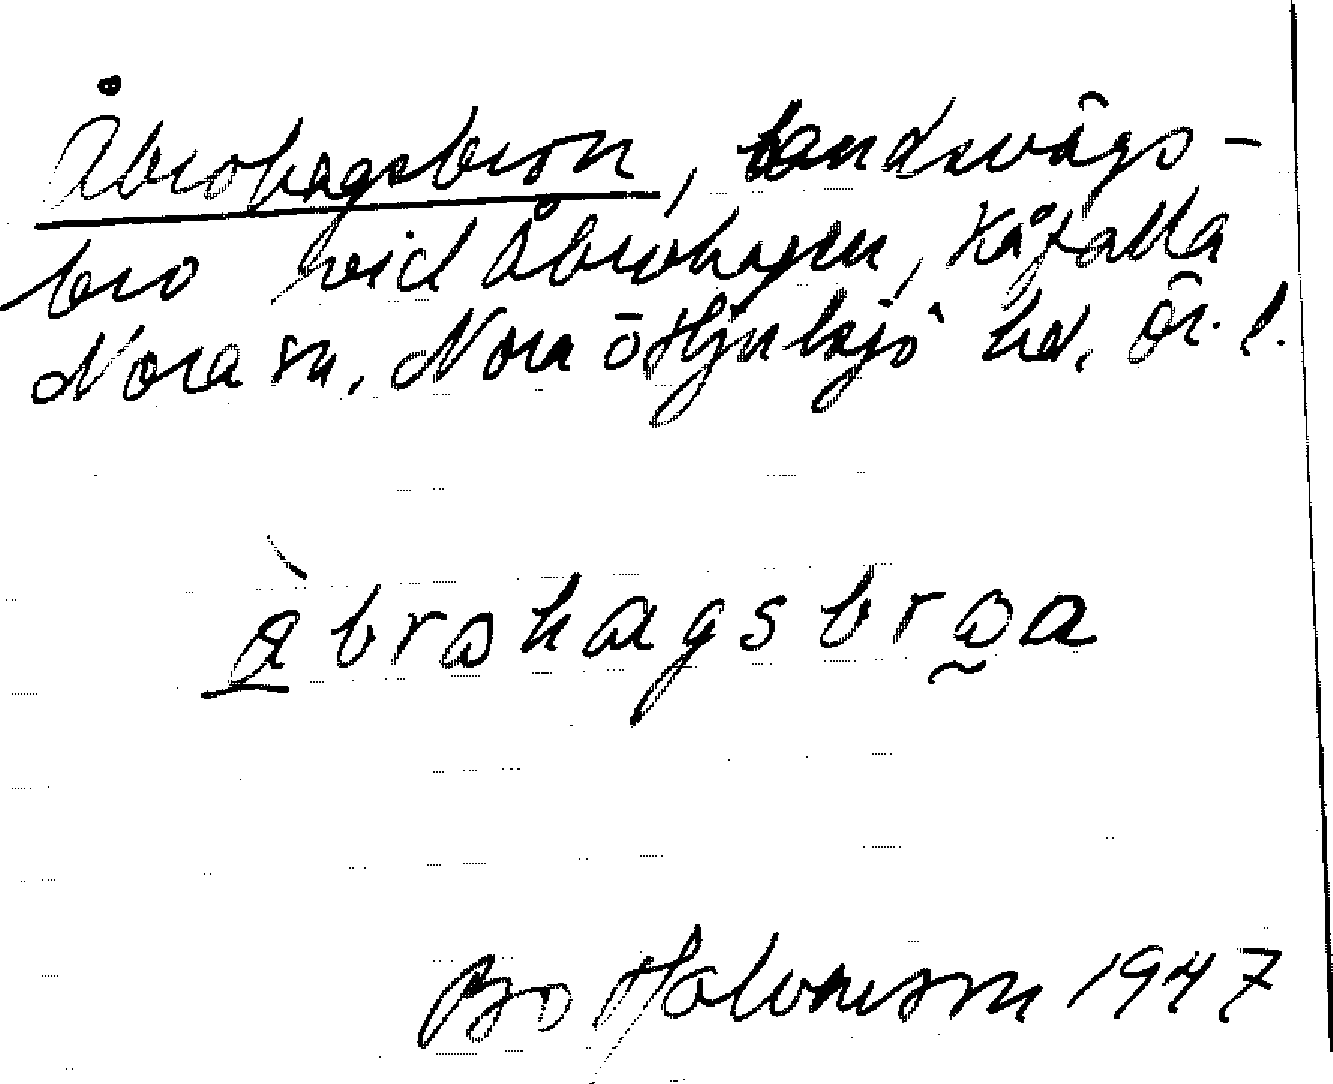 Åbrohagsbron, landsvägs-
bro vid Åbrohagen, Kåfalla
Nora sn. Nora o Hjulsjö hd. Ör. l.
àbrohagsbroa
Bo 1947